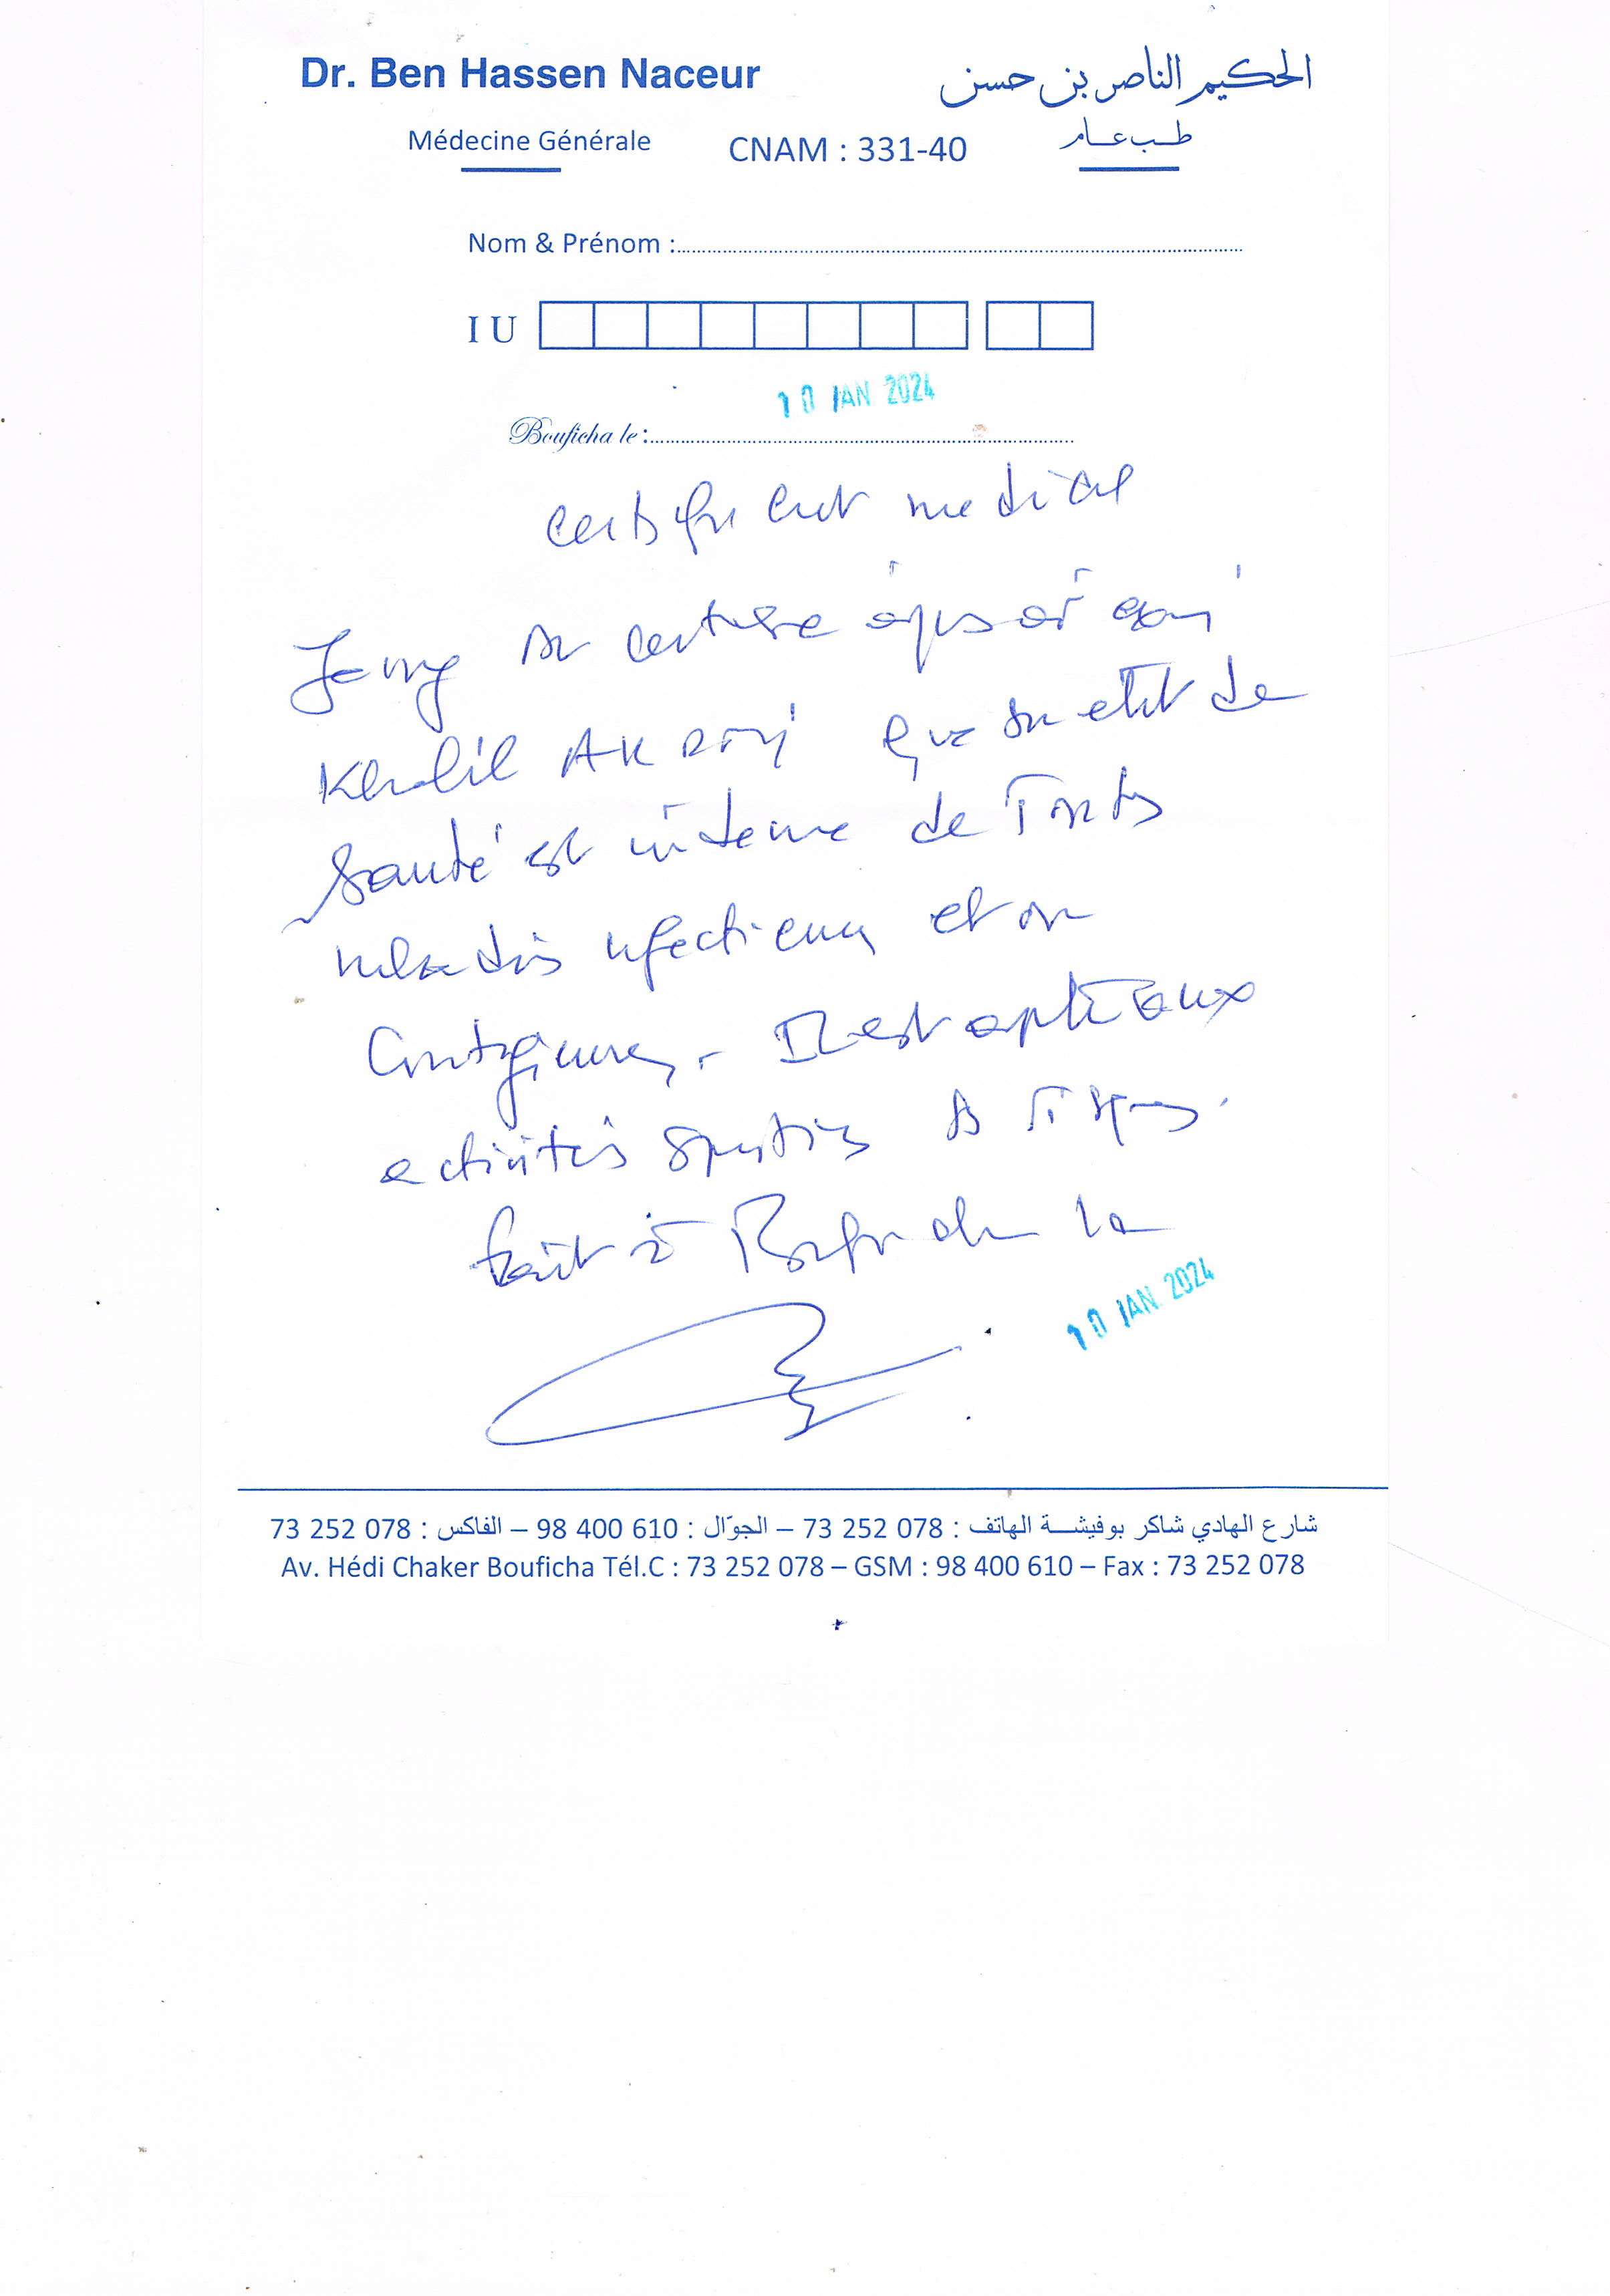 Dr. Ben Hassen Naceur
الحكيم الناصر بن حسن
Médecine Générale
CNAM : 331-40
طب عام
Nom & Prénom :
I U
10 JAN 2024
Bouficha le :
certificat medical
certifie
Khalil que son etat de
santé est indemne de toute
maladies infectieuses et ou
Contagieuses. Il est apte aux
activités sportives
fait à Bouficha le
10 JAN 2024
شارع الهادي شاكر بوفيشة الهاتف : 73 252 078 – الجوّال : 98 400 610 – الفاكس : 73 252 078
Av. Hédi Chaker Bouficha Tél.C : 73 252 078 – GSM : 98 400 610 – Fax : 73 252 078